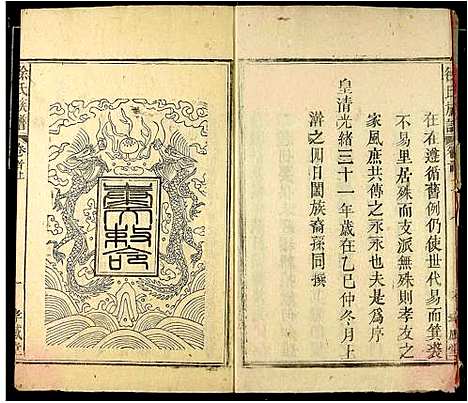 在在遵循舊例仍使世代易而箕裘
不易里居殊而支派無殊則孝友之
家風庶共傳之永永也夫是為序
皇清光緒三十一年歲在乙巳仲冬月上
澣之四日闔族裔孫同撰
徐氏族譜
卷首上